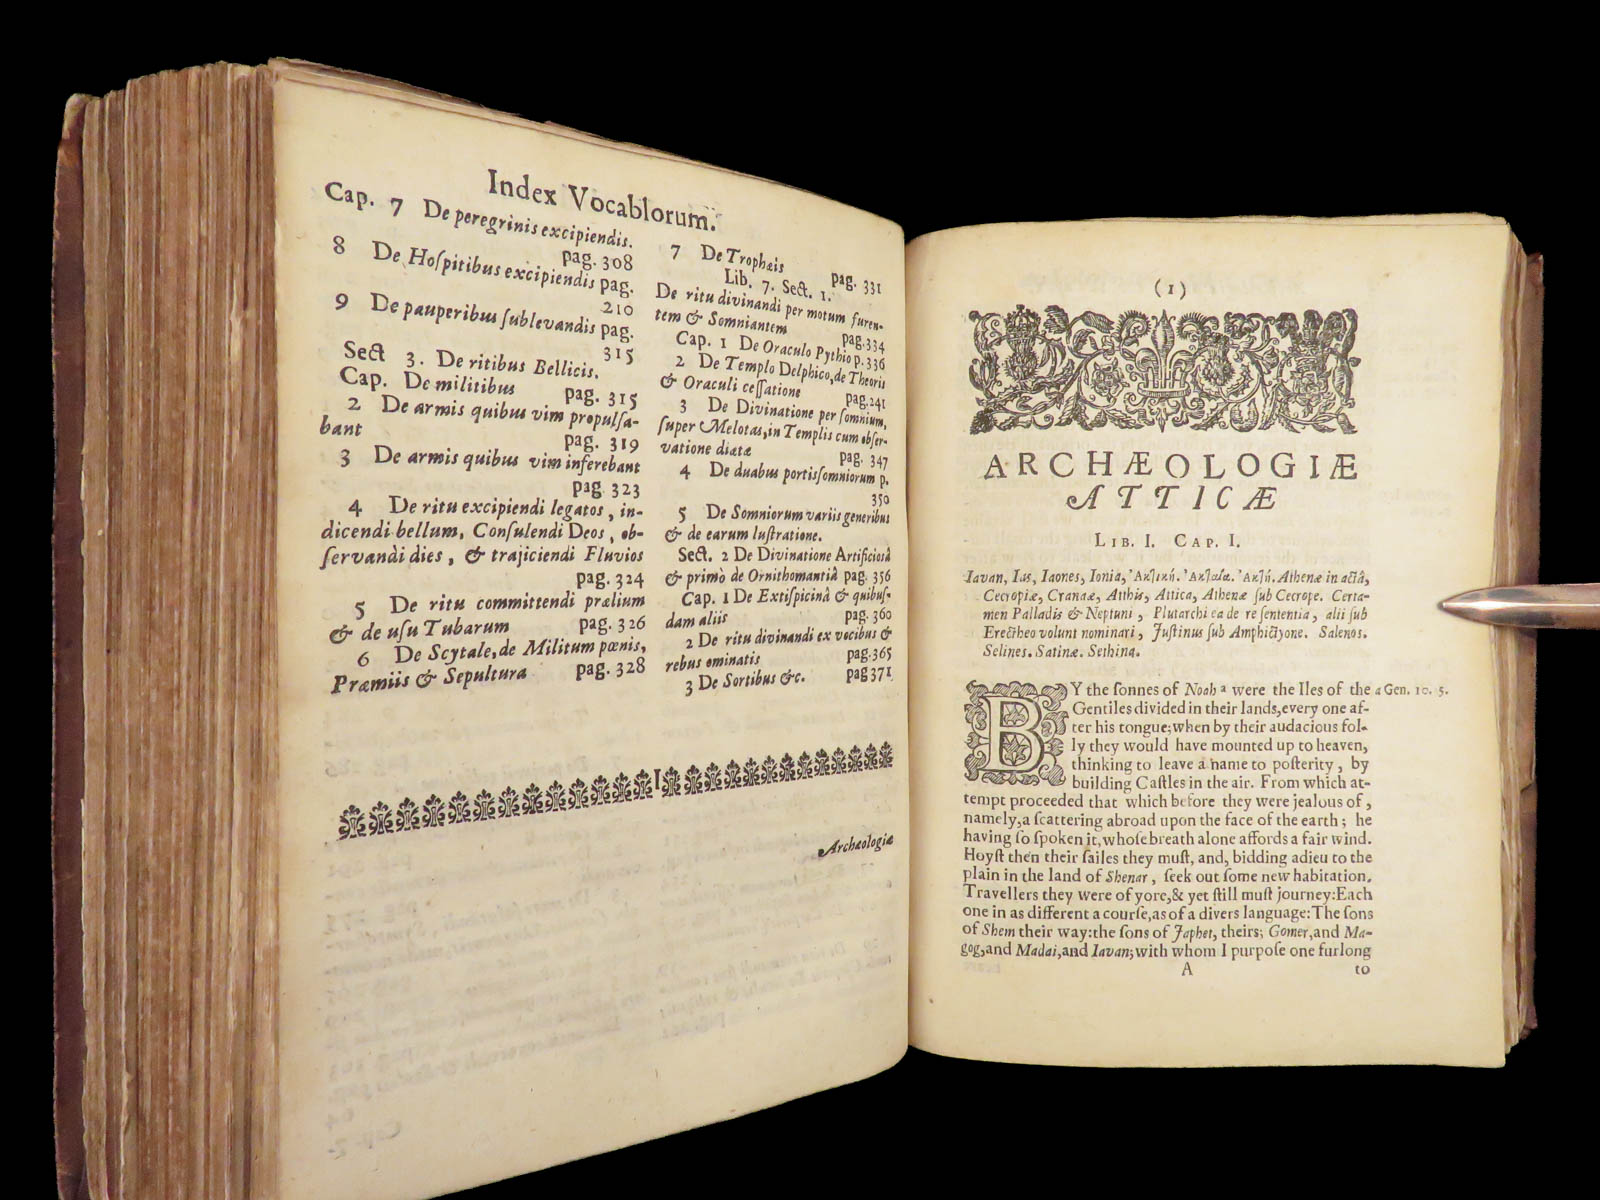 Index Vocablorum.
Cap. 7 De peregrinis excipiendis.
pag. 308
8 De Hoſpitibus excipiendis pag.
210
9 De pauperibus ſublevandis pag.
315
Sect 3. De ritibus Bellicis.
Cap. De militibus pag. 315
2 De armis quibus vim propulſa-
bant pag. 319
3 De armis quibus vim inferebant
pag. 323
4 De ritu excipiendi legatos, in-
dicendi bellum, Conſulendi Deos, ob-
ſervandi dies, & trajiciendi Fluvios
pag. 324
5 De ritu committendi prælium
& de uſu Tubarum pag. 326
6 De Scytale, de Militum pœnis,
Præmiis & Sepultura pag. 328
7 De Trophæis pag. 331
Lib. 7. Sect. 1.
De ritu divinandi per motum furen-
tem & Somniantem pag. 334
Cap. 1 De Oraculo Pythio p. 336
2 De Templo Delphico, de Theoris
& Oraculi ceſſatione pag. 241
3 De Divinatione per ſomnium,
ſuper Melotas, in Templis cum obſer-
vatione diætæ pag. 347
4 De duabus portis ſomniorum p.
350
5 De Somniorum variis generibus
& de earum luſtratione.
Sect. 2 De Divinatione Artificiosâ
& primò de Ornithomantiâ pag. 356
Cap. 1 De Extiſpicinâ & quibuſ-
dam aliis pag. 360
2 De ritu divinandi ex vocibus &
rebus ominatis pag. 365
3 De Sortibus &c. pag 371
Archæologiæ
(1)
ARCHÆOLOGIÆ
ATTICÆ
LIB. I. CAP. I.
Iavan, Ias, Iaones, Ionia, Athenæ in actâ,
Cecropiæ, Cranaæ, Atthis, Attica, Athenæ ſub Cecrope. Certa-
men Palladis & Neptuni, Plutarchi ea de re ſententia, alii ſub
Erectheo volunt nominari, Juſtinus ſub Amphictyone. Salenos.
Selines. Satinæ. Sethina.
BY the ſonnes of Noah a were the Iles of the a Gen. 10. 5.
Gentiles divided in their lands, every one af-
ter his tongue; when by their audacious fol-
ly they would have mounted up to heaven,
thinking to leave a name to poſterity, by
building Caſtles in the air. From which at-
tempt proceeded that which before they were jealous of,
namely, a ſcattering abroad upon the face of the earth; he
having ſo ſpoken it, whoſe breath alone affords a fair wind.
Hoyſt then their ſailes they muſt, and, bidding adieu to the
plain in the land of Shenar, ſeek out ſome new habitation.
Travellers they were of yore, & yet ſtill muſt journey: Each
one in as different a courſe, as of a divers language: The ſons
of Shem their way: the ſons of Japhet, theirs; Gomer, and Ma-
gog, and Madai, and Iavan; with whom I purpoſe one furlong
A to